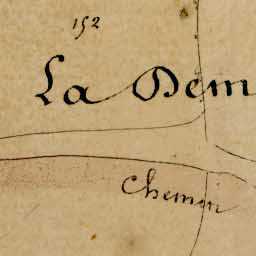 152
La Dem
Chemin